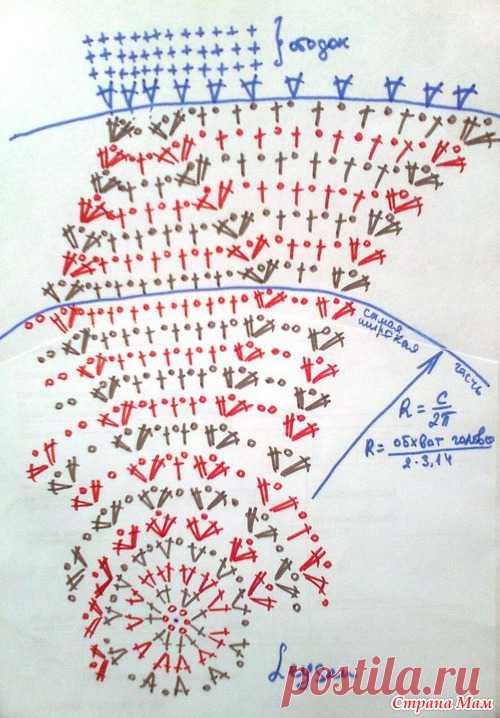 ободок
самая
широкая
часть
R = C
2π
R = обхват головы
2·3,14
postila.ru
Страна Мам